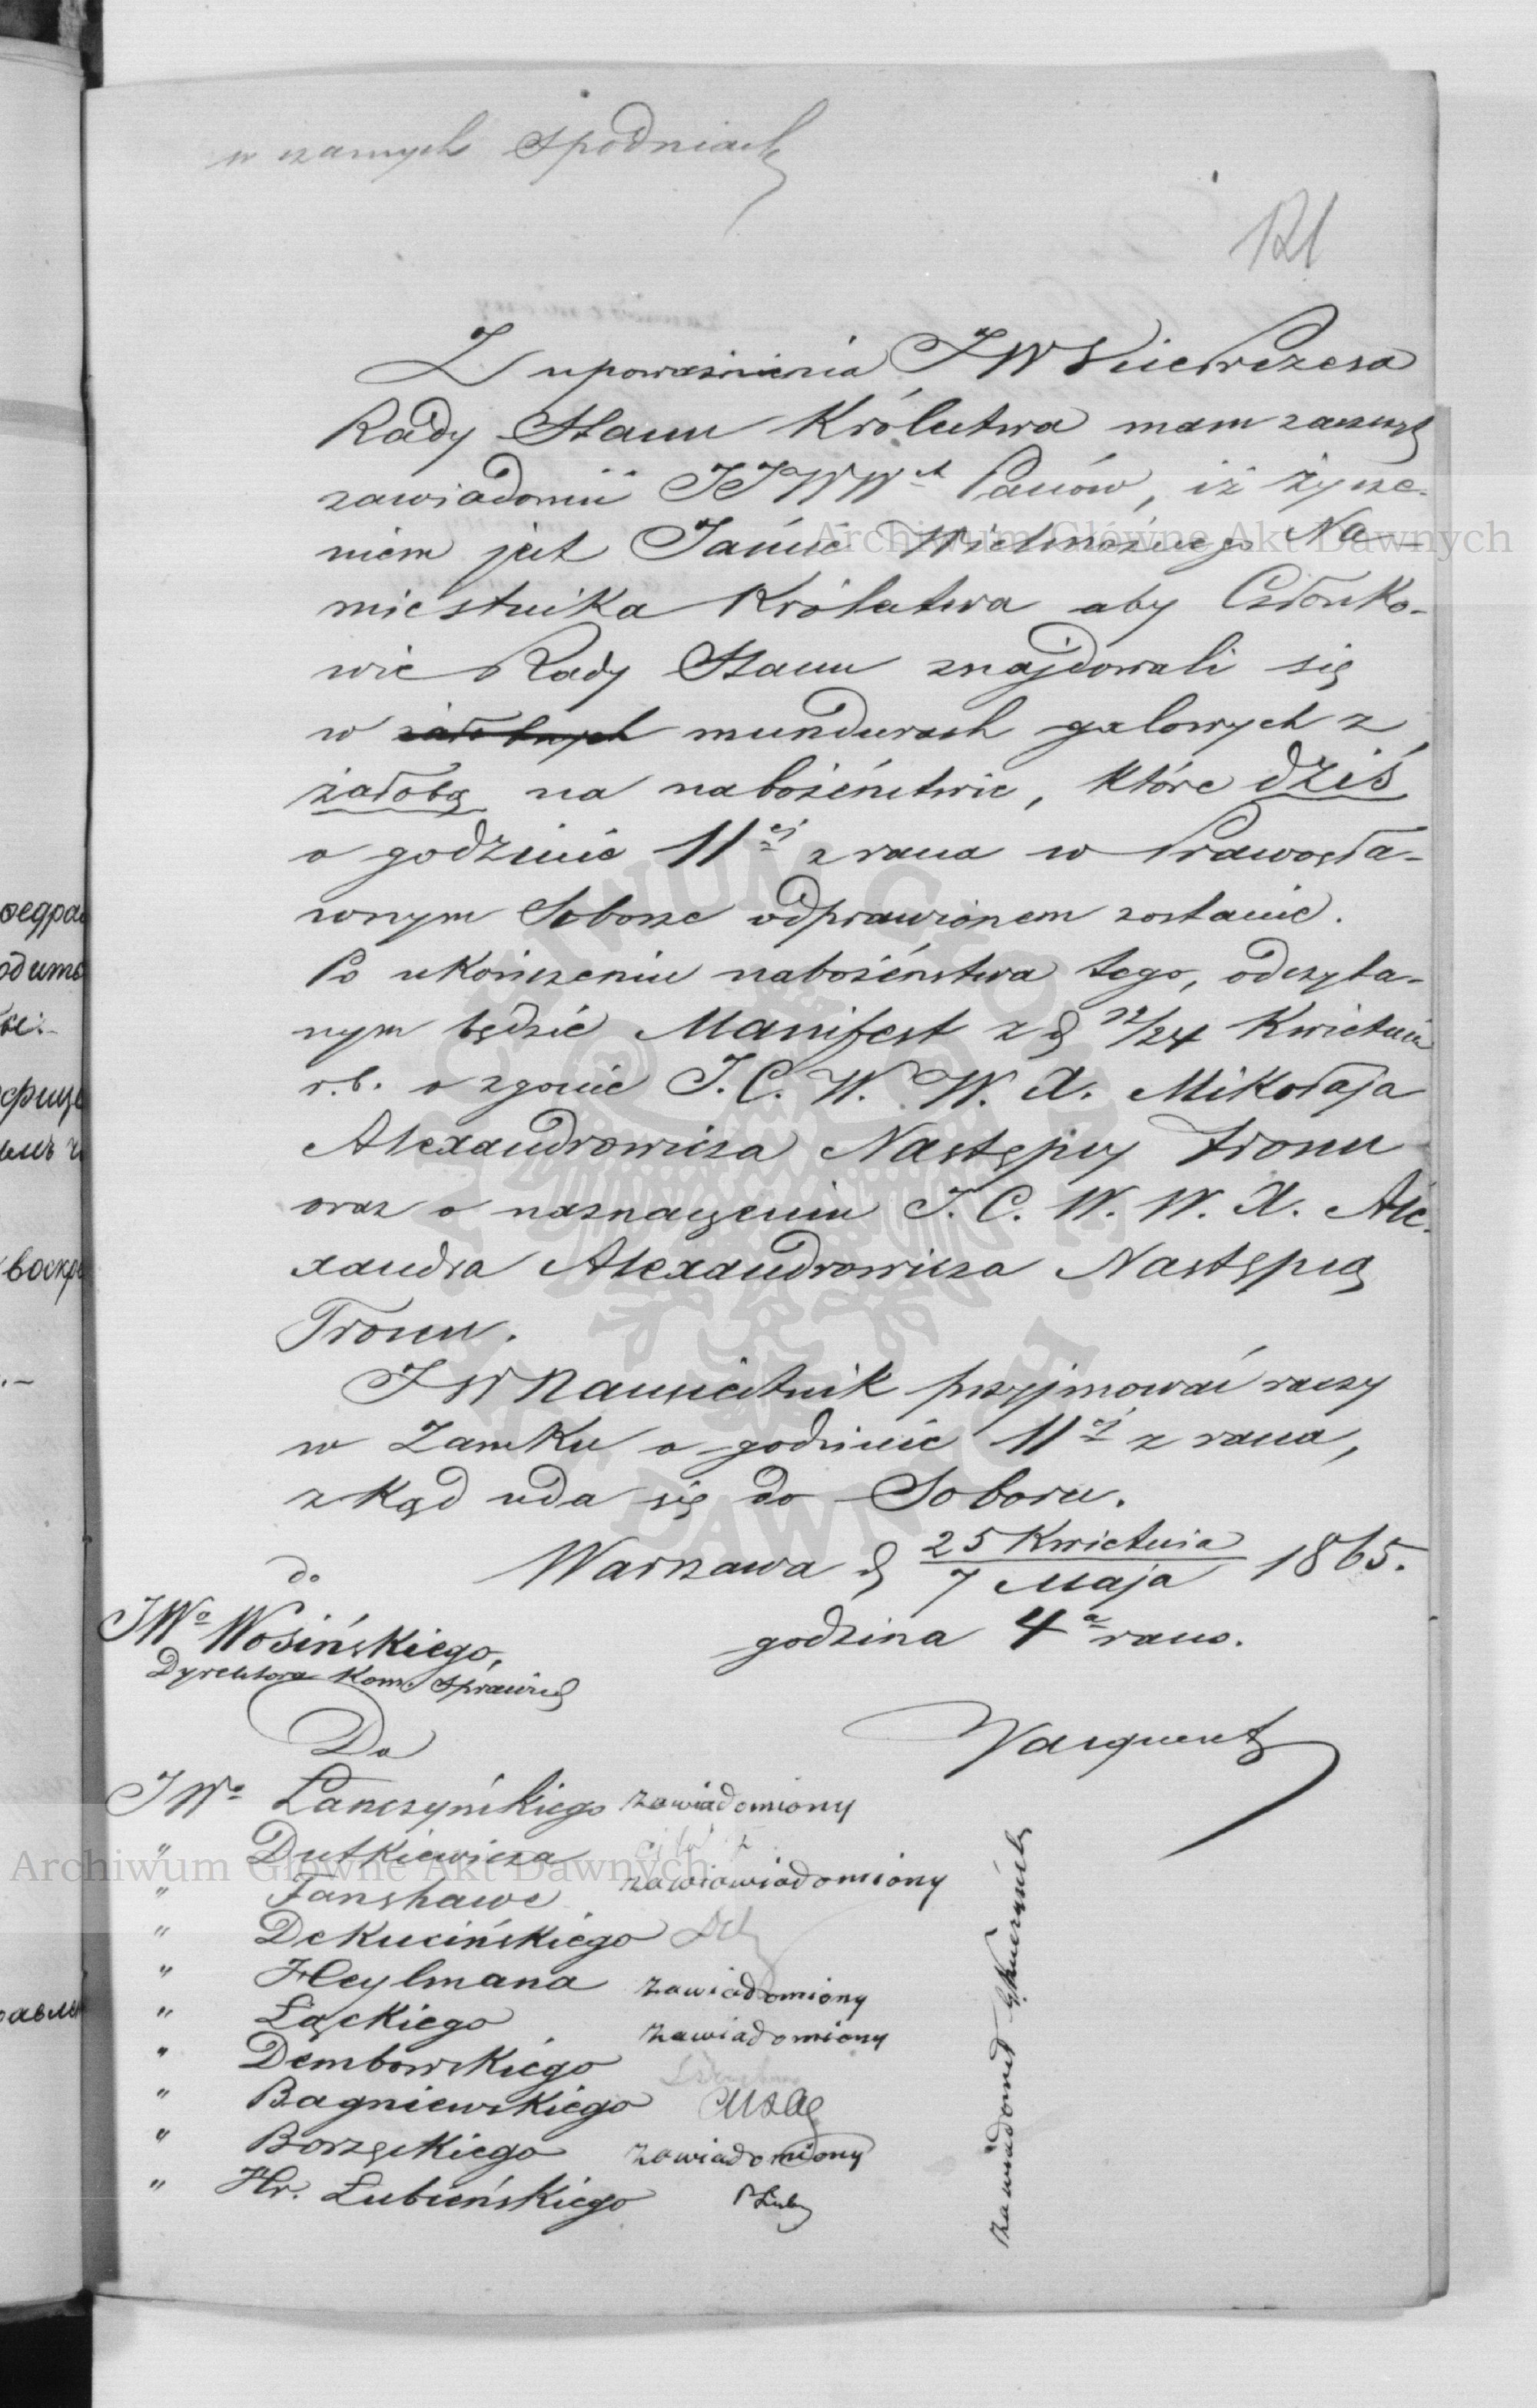 w czarnych spodniach
121
Z upoważnienia JW Vice Prezesa
Rady Stanu Królestwa mam zaszczyt
zawiadomić JJWW<sup>ch</sup> Panów, iż życze-
niem jest Jaśnie Wielmożnego Na-
miestnika Królestwa aby Członko-
wie Rady Stanu znajdowali się
w żałobnych mundurach galowych z
żałobą na nabożeństwie, które dziś
o godzinie 11<sup>ej</sup> z rana w Prawosła-
wnym Soborze odprawionem zostanie.
Po ukończeniu nabożeństwa tego, odczyta-
nym będzie Manifest z d 12/24 Kwietnia
r.b. o zgonie J.C.W.W.X. Mikołaja
Alexandrowicza Następcy tronu
oraz o naznaczeniu J.C.W.W.X. Ale-
xandra Alexandrowicza Następcą
Tronu.
JW Namiestnik przyjmować raczy
w Zamku o godzinie 11<sup>ej</sup> z rana,
z kąd uda się do Soboru.
Warszawa d 25 Kwietnia / 7 Maja 1865.
godzina 4<sup>a</sup> rano.
do
JW<sup>o</sup> Wosińskiego,
Dyrektora Kom. Sprawied
Do
JW<sup>o</sup> Łanczyńskiego zawiadomiony
" Dutkiewicza
" Fanshawe zawiawiadomiony
" Dekucińskiego
" Heylmana zawiadomiony
" Łąckiego zawiadomiony
" Dembowskiego
" Bagniewskiego
" Borzęckiego zawiadomiony
" Hr. Łubieńskiego PŁub
zawiadomił
Archiwum Główne Akt Dawnych
Archiwum Główne Akt Dawnych
ARCHIWUM GŁÓWNE AKT DAWNYCH